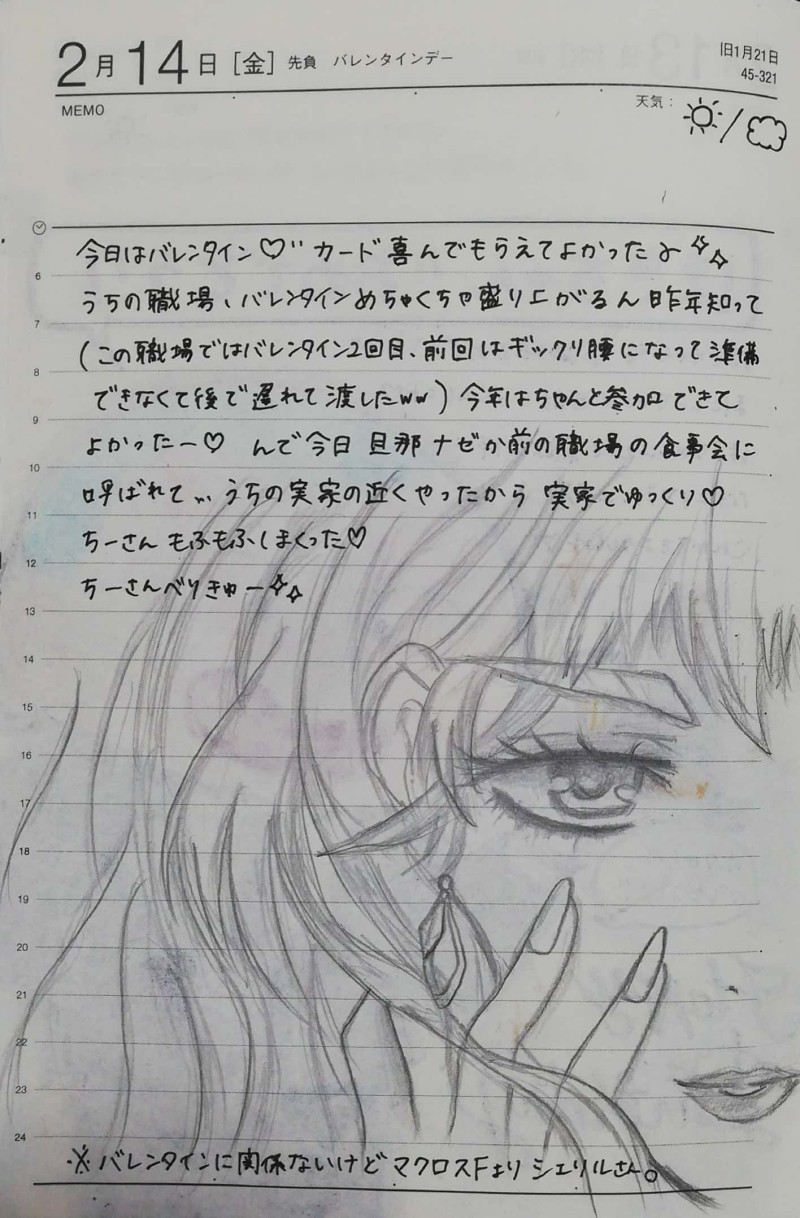 2月14日[金] 先負 バレンタインデー
旧1月21日
45-321
MEMO
天気:
今日はバレンタイン♡" カード喜んでもらえてよかったよ
6
うちの職場、バレンタインめちゃくちゃ盛り上がるん昨年知って
7
(この職場ではバレンタイン2回目、前回はギックリ腰になって準備
8
できなくて後で遅れて渡したww)今年はちゃんと参加できて
9
よかったー♡ んで今日 旦那 ナゼか前の職場の食事会に
10
呼ばれて… うちの実家の近くやったから 実家でゆっくり♡
11
ちーさん もふもふしまくった♡
12
ちーさんべりきゅー
13
14
15
16
17
18
19
20
21
22
23
24
※バレンタインに関係ないけど マクロスFより シェリルさん。